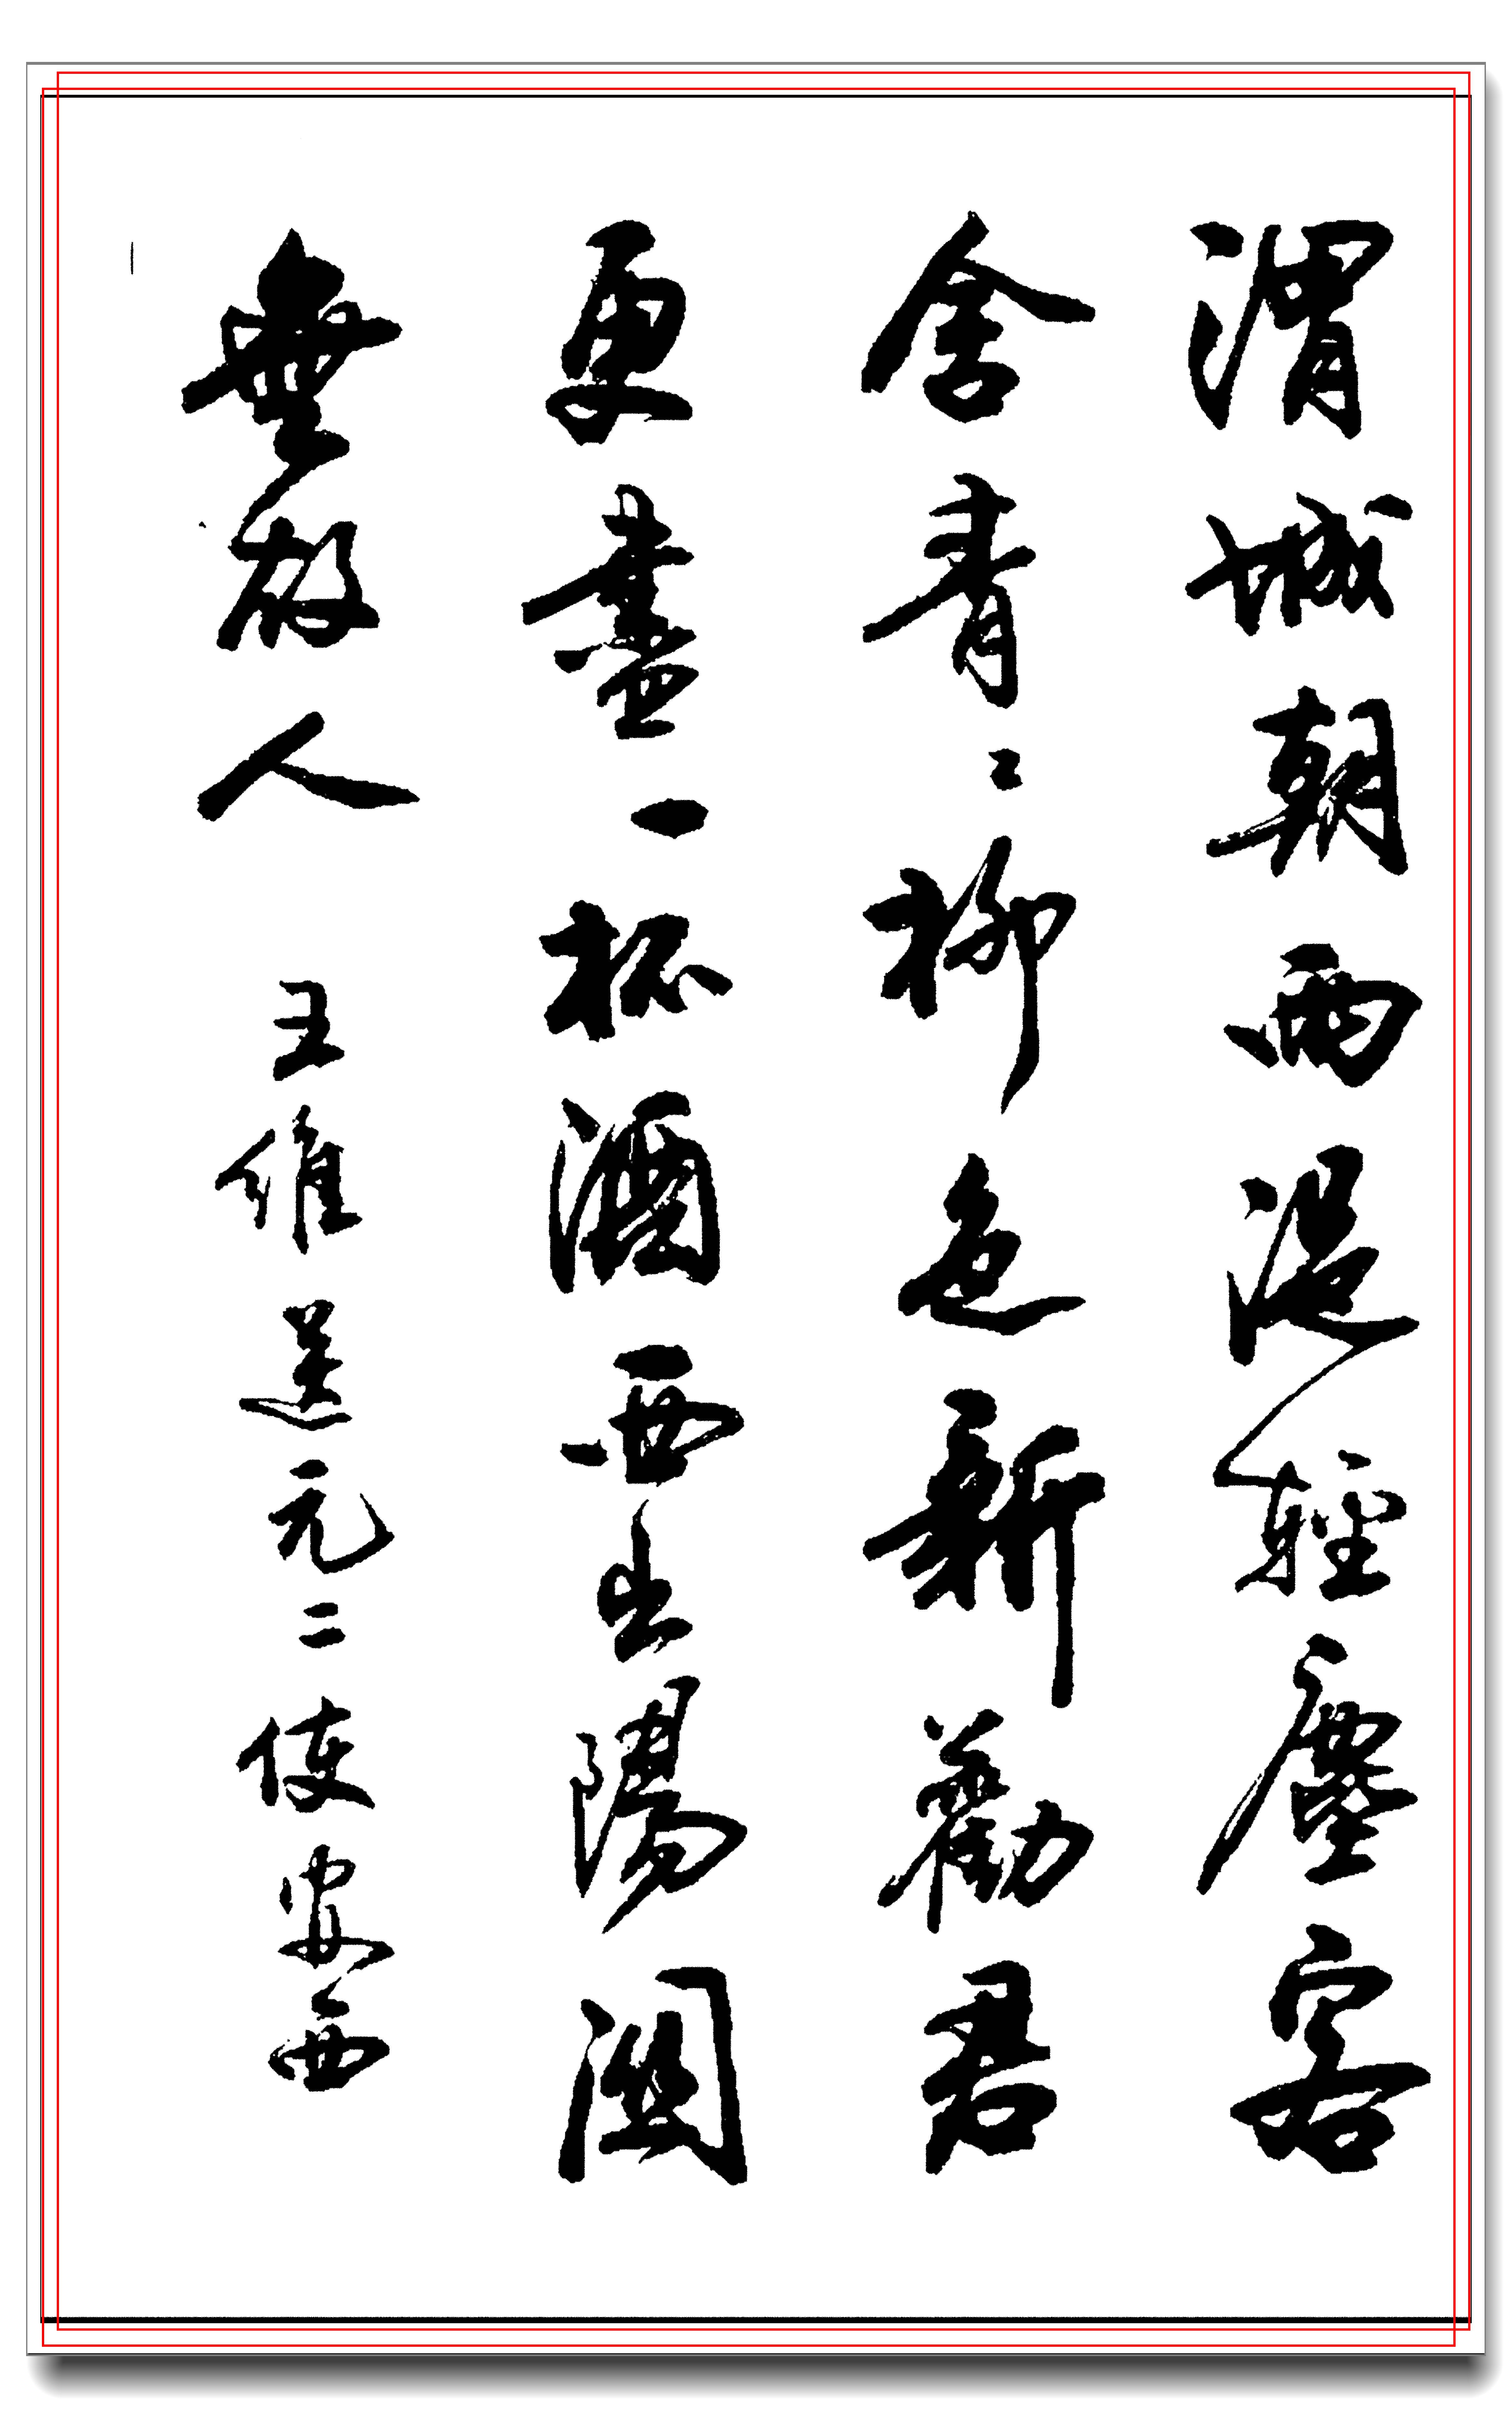 渭城朝雨浥輕塵客
舍青〻柳色新勸君
更盡一杯酒西出陽關
無故人 王維送元二使安西